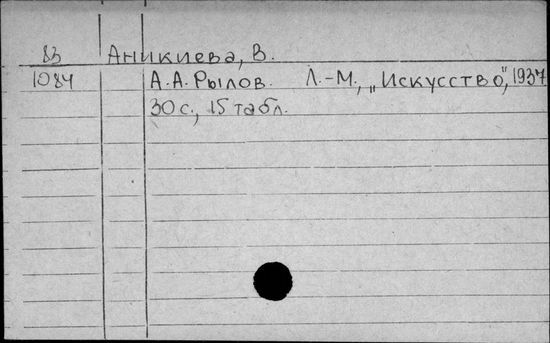 83 Аникиева, В.
1084 А.А. Рылов. Л.-М., „Искусство", 1937
30 с., 15 табл.